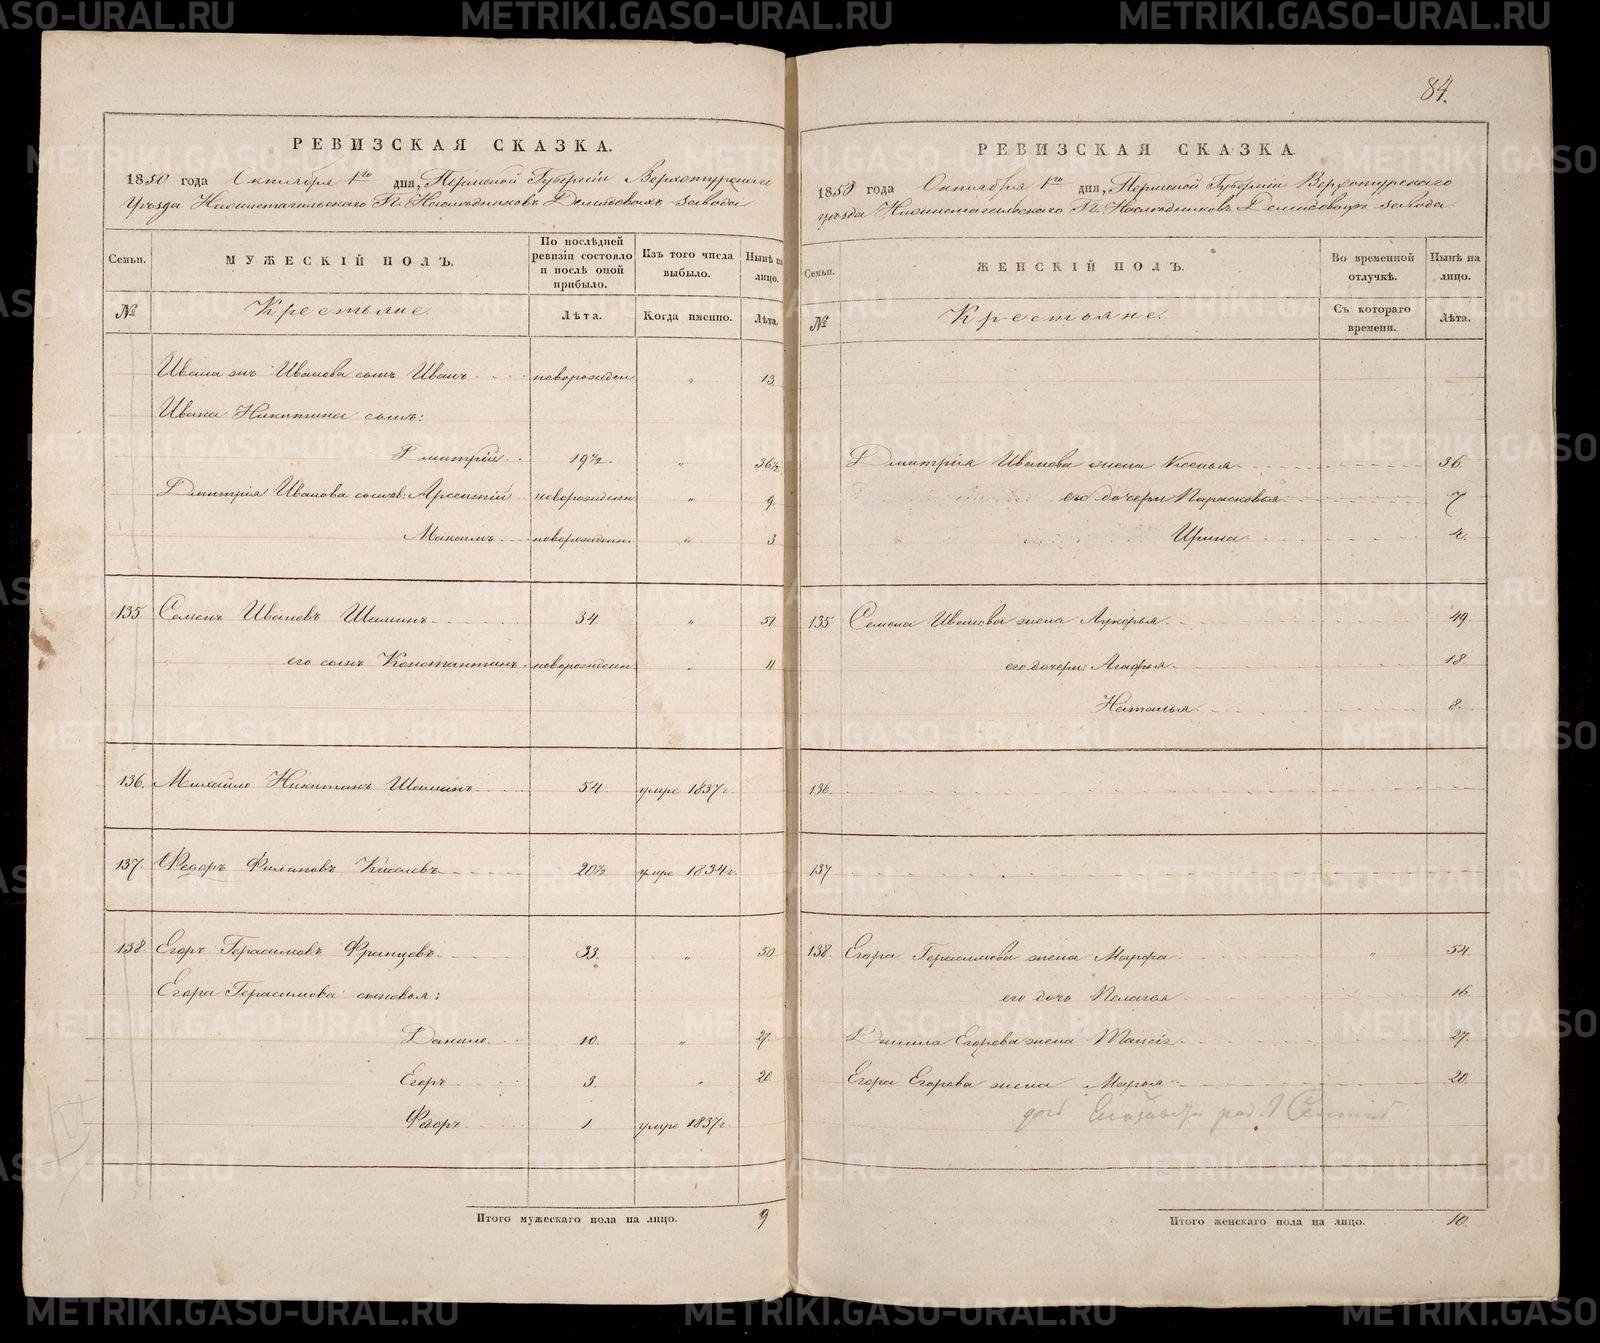 84.
РЕВИЗСКАЯ СКАЗКА.
1850 года Октября 1го дня, Пермской Губерніи Верхотурскаго
уѣзда Нижнетагильскаго Гг. Наслѣдниковъ Демидовыхъ завода
Семьи.
МУЖЕСКІЙ ПОЛЪ.
По послѣдней ревизіи состояло и послѣ оной прибыло.
Изъ того числа выбыло.
Нынѣ на лицо.
№
Крестьяне
Лѣта.
Когда именно.
Лѣта.
Ивана Иванова сынъ Иванъ новорожден " 13
Ивана Никитина сынъ:
Дмитрій 19½ " 36½
Дмитрія Иванова сынов: Арсентій новорожденн " 9
Максимъ новорожденн. " 3
135. Семенъ Ивановъ Шаминъ 34 " 51
его сынъ Константинъ новорожденн " 11
136. Михайло Никитинъ Шаминъ 54 умре 1837 г.
137. Федоръ Филиповъ Киселевъ 20½ умре 1834 г.
138. Егоръ Герасимовъ Французовъ 33 " 50
Егора Герасимова сыновья:
Данило 10. " 27
Егоръ 3. " 20
Федоръ 1 умре 1837 г.
Итого мужескаго пола на лицо. 9
РЕВИЗСКАЯ СКАЗКА
1850 года Октября 1го дня, Пермской Губерніи Верхотурскаго
уѣзда Нижнетагильскаго Гг. Наслѣдниковъ Демидовыхъ завода
Семьи.
ЖЕНСКІЙ ПОЛЪ.
Во временной отлучкѣ.
Нынѣ на лицо.
№
Крестьяне.
Съ котораго времени.
Лѣта.
Дмитрія Иванова жена Ксенья 36
его дочери Парасковья 7
Ирина 4.
135 Семена Иванова жена Лукерья 49
его дочери: Агафья 18
Наталья 8.
136.
137
138. Егора Герасимова жена Марфа " 54
его дочь Пелагея 16.
Данила Егорова жена 27.
Егора Егорова жена Марья 20.
Итого женскаго пола на лицо. 10.
METRIKI.GASO-URAL.RU